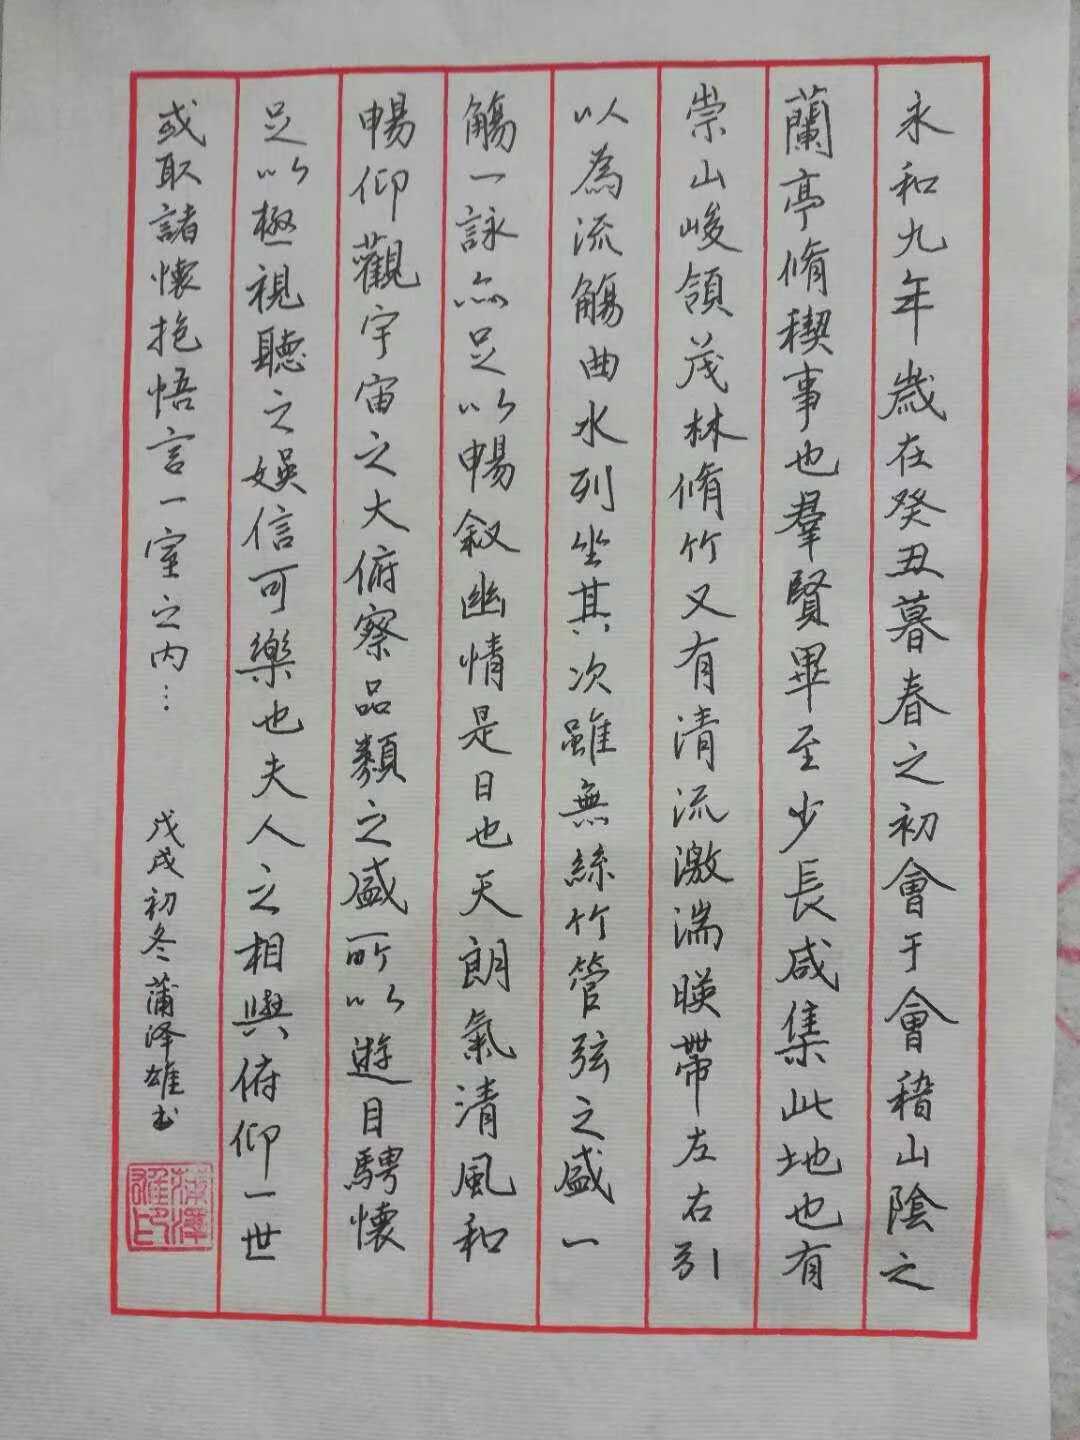 永和九年歲在癸丑暮春之初會于會稽山陰之
蘭亭脩稧事也羣賢畢至少長咸集此地也有
崇山峻領茂林脩竹又有清流激湍暎帶左右引
以為流觴曲水列坐其次雖無絲竹管弦之盛一
觴一詠亦足以暢叙幽情是日也天朗氣清風和
暢仰觀宇宙之大俯察品類之盛所以遊目騁懷
足以極視聽之娛信可樂也夫人之相與俯仰一世
或取諸懷抱悟言一室之內…
戊戌初冬蒲泽雄书
蒲澤雄印